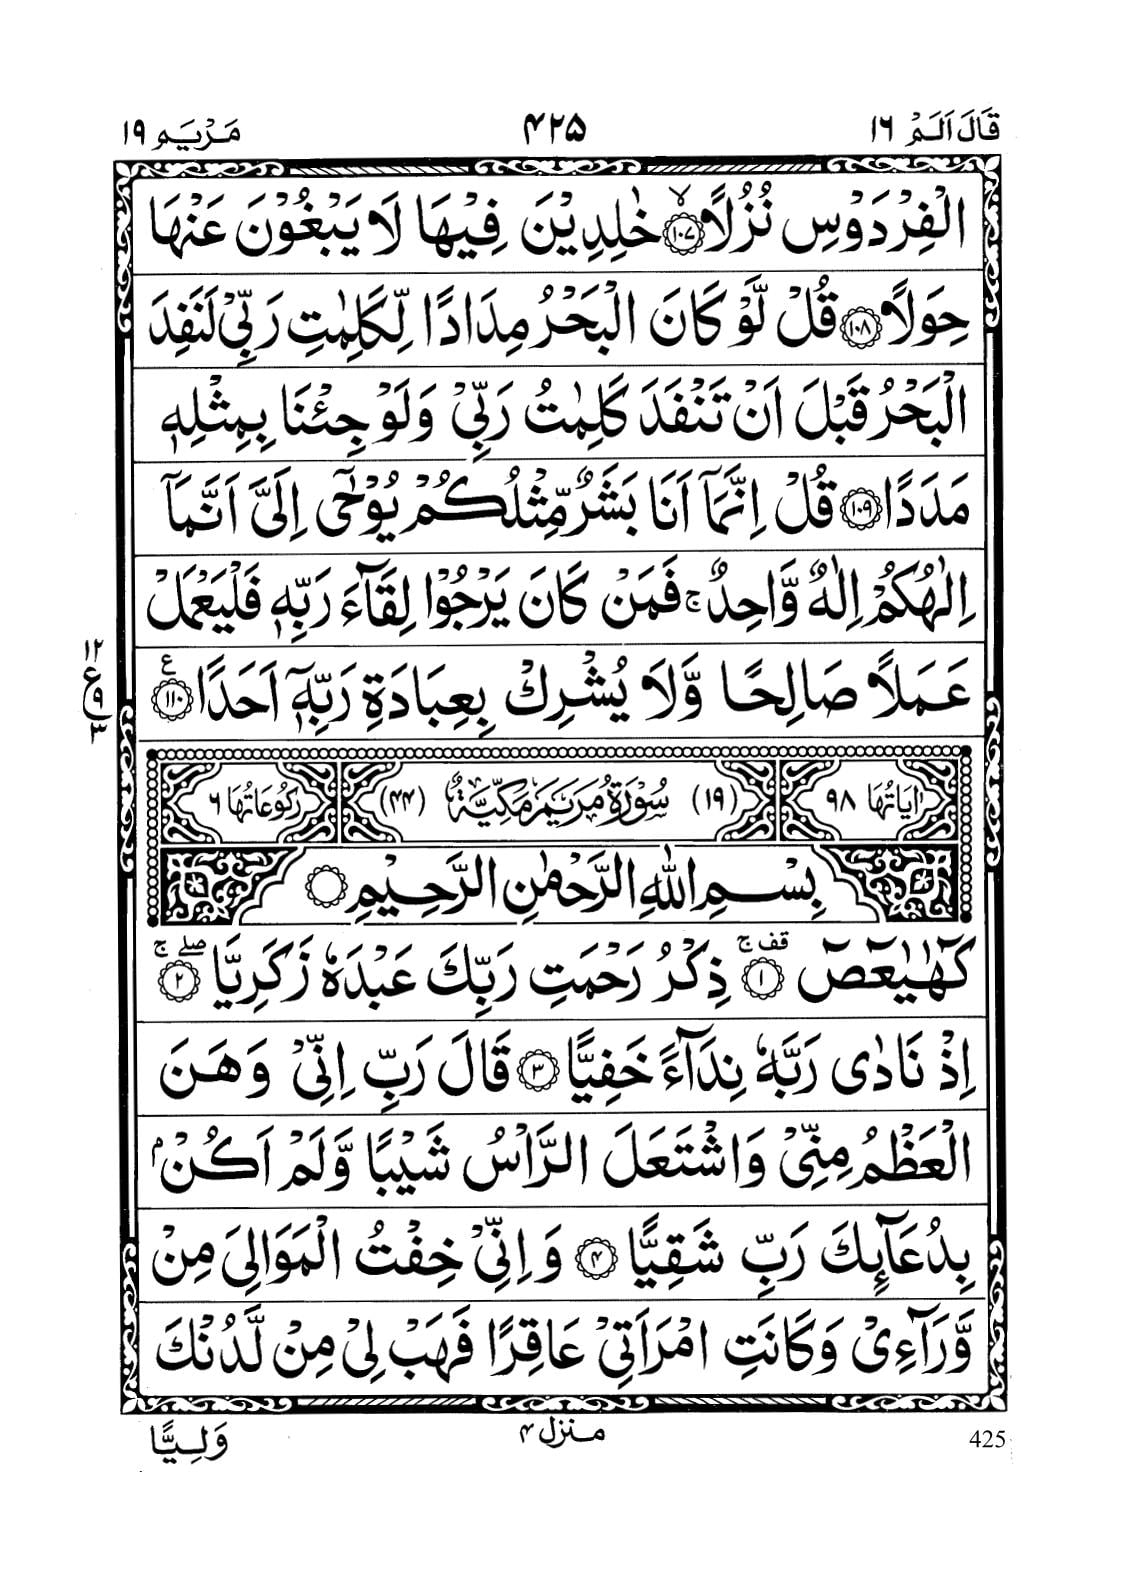 قَالَ اَلَمْ ١٦ ۴۲۵ مَرْيَم ١٩
الْفِرْدَوْسِ نُزُلًا ۙ‏﴿۱۰۷﴾ خٰلِدِيْنَ فِيْهَا لَا يَبْغُوْنَ عَنْهَا
حِوَلًا ﴿۱۰۸﴾ قُلْ لَّوْ كَانَ الْبَحْرُ مِدَادًا لِّكَلِمٰتِ رَبِّيْ لَنَفِدَ
الْبَحْرُ قَبْلَ اَنْ تَنْفَدَ كَلِمٰتُ رَبِّيْ وَلَوْ جِئْنَا بِمِثْلِهٖ
مَدَدًا ﴿۱۰۹﴾ قُلْ اِنَّمَاۤ اَنَا بَشَرٌ مِّثْلُكُمْ يُوْحٰۤى اِلَيَّ اَنَّمَاۤ
اِلٰهُكُمْ اِلٰهٌ وَّاحِدٌ ۚ فَمَنْ كَانَ يَرْجُوْا لِقَآءَ رَبِّهٖ فَلْيَعْمَلْ
عَمَلًا صَالِحًا وَّلَا يُشْرِكْ بِعِبَادَةِ رَبِّهٖۤ اَحَدًا ﴿۱۱۰﴾ ع
۱۲
ع ۹
۳
اٰيَاتُهَا ۹۸ (۱۹) سُوْرَةُ مَرْيَمَ مَكِّيَّةٌ (۴۴) رُكُوْعَاتُهَا ۶
بِسْمِ اللّٰهِ الرَّحْمٰنِ الرَّحِيْمِ
كٓهٰيٰعٓصٓ ﴿۱﴾ قف ج ذِكْرُ رَحْمَتِ رَبِّكَ عَبْدَهٗ زَكَرِيَّا ﴿۲﴾ صلے ج
اِذْ نَادٰى رَبَّهٗ نِدَآءً خَفِيًّا ﴿۳﴾ قَالَ رَبِّ اِنِّيْ وَهَنَ
الْعَظْمُ مِنِّيْ وَاشْتَعَلَ الرَّاْسُ شَيْبًا وَّلَمْ اَكُنْۢ
بِدُعَآئِكَ رَبِّ شَقِيًّا ﴿۴﴾ وَاِنِّيْ خِفْتُ الْمَوَالِيَ مِنْ
وَّرَآءِيْ وَكَانَتِ امْرَاَتِيْ عَاقِرًا فَهَبْ لِيْ مِنْ لَّدُنْكَ
وَلِيًّا منزل ۴ 425